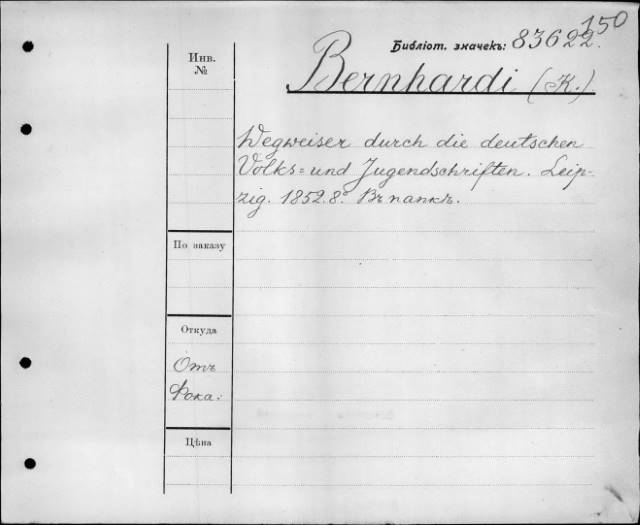 150
Библіот. значекъ: 83622.
Инв.
№
Bernhardi (K.)
Wegweiser durch die deutschen
Volks= und Jugendschriften. Leip-
zig. 1852. 8º. Въ папкѣ.
По заказу
Откуда
Отъ
Фока.
Цѣна